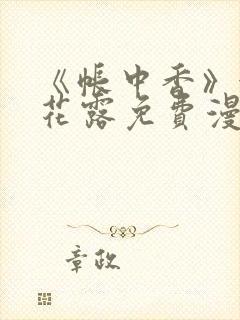 《帐中香》
花露免费漫
章政